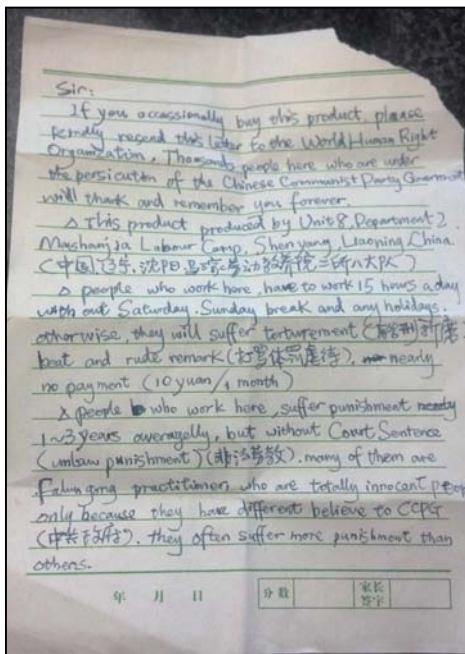 Sir:
If you occassionally buy this product, please
kindly resend this letter to the World Human Right
Organization. Thousands people here who are under
the persicution of the Chinese Communist Party Government
will thank and remember you forever.
△ This product produced by Unit 8, Department 2,
Mashanjia Labour Camp, Shenyang, Liaoning, China.
(中国,辽宁,沈阳,马三家劳动教养院二所八大队)
△ people who work here, have to work 15 hours a day
with out Saturday, Sunday break and any holidays,
otherwise, they will suffer torturement (折磨),
beat and rude remark (打骂体罚虐待), nearly
no payment (10 yuan/1 month)
△ people who work here, suffer punishment
1~3 years averagelly, but without Court Sentence
(unlaw punishment) (非法劳教). many of them are
Falungong practitioner, who are totally innocent people
only because they have different believe to CCPG
(中共政府), they often suffer more punishment than
others.
年 月 日 分数 家长
签字